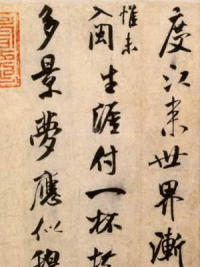 度江業世界漸
惟未
入閩生涯付一杯
多景夢應似